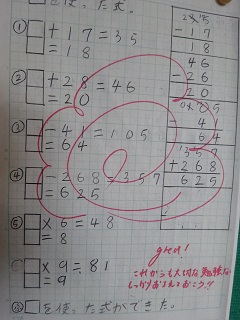 を使った式。
① □+17=35
=18
② □+28=46
=20
③ □-41=105
=64
④ □-268=357
=625
⑤ □×6=48
=8
□×9=81
=9
□を使った式ができた。
-17
18
46
-26
20
64
357
+268
625
great!
これからも大切な勉強な